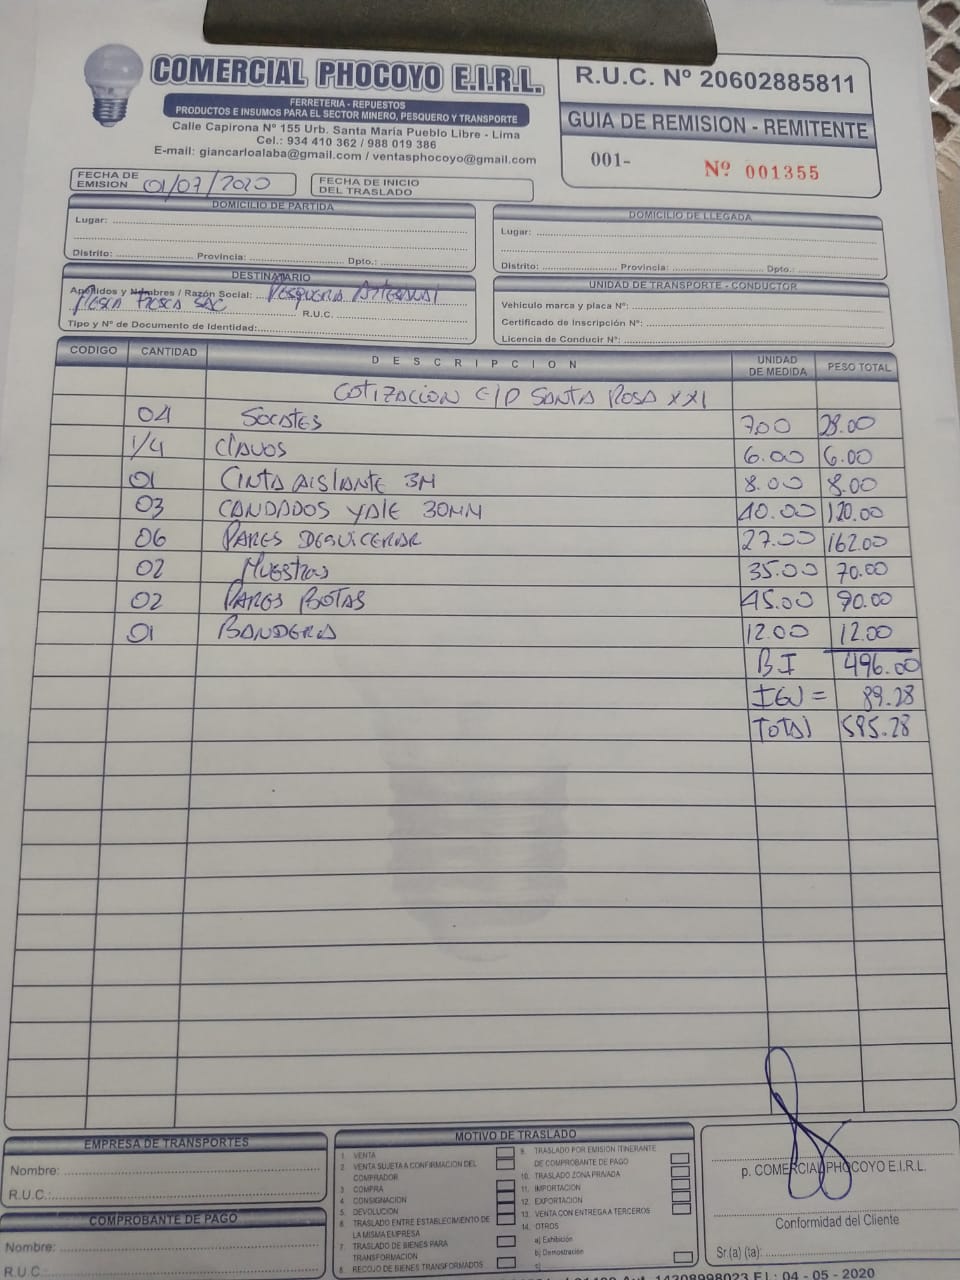 COMERCIAL PHOCOYO E.I.R.L.
FERRETERIA - REPUESTOS
PRODUCTOS E INSUMOS PARA EL SECTOR MINERO, PESQUERO Y TRANSPORTE
Calle Capirona Nº 155 Urb. Santa María Pueblo Libre - Lima
Cel.: 934 410 362 / 988 019 386
E-mail: giancarloalaba@gmail.com / ventasphocoyo@gmail.com
R.U.C. Nº 20602885811
GUIA DE REMISION - REMITENTE
001- Nº 001355
FECHA DE EMISION 01/07/2020
FECHA DE INICIO DEL TRASLADO
DOMICILIO DE PARTIDA
Lugar:
Distrito: Provincia: Dpto.:
DOMICILIO DE LLEGADA
Lugar:
Distrito: Provincia: Dpto.:
DESTINATARIO
Apellidos y Nombres / Razón Social: Pesquera Artesanal
Pesca Fresca SAC R.U.C.
Tipo y Nº de Documento de Identidad:
UNIDAD DE TRANSPORTE - CONDUCTOR
Vehiculo marca y placa Nº:
Certificado de Inscripción Nº:
Licencia de Conducir Nº:
CODIGO CANTIDAD DESCRIPCION UNIDAD DE MEDIDA PESO TOTAL
Cotizacion E/P Santa Rosa XXI
04 Socates 7.00 28.00
1/4 Clavos 6.00 6.00
01 Cinta aislante 3M 8.00 8.00
03 Candados Yale 30mm 40.00 120.00
06 Pares 27.00 162.00
02 35.00 70.00
02 Pares Botas 45.00 90.00
01 Bandera 12.00 12.00
BI 496.00
IGV = 89.28
Total 585.28
EMPRESA DE TRANSPORTES
Nombre:
R.U.C.:
COMPROBANTE DE PAGO
Nombre:
R.U.C.:
MOTIVO DE TRASLADO
1. VENTA
2. VENTA SUJETA A CONFIRMACION DEL COMPRADOR
3. COMPRA
4. CONSIGNACION
5. DEVOLUCION
6. TRASLADO ENTRE ESTABLECIMIENTO DE LA MISMA EMPRESA
7. TRASLADO DE BIENES PARA TRANSFORMACION
8. RECOJO DE BIENES TRANSFORMADOS
9. TRASLADO POR EMISION ITINERANTE DE COMPROBANTE DE PAGO
10. TRASLADO ZONA PRIVADA
11. IMPORTACION
12. EXPORTACION
13. VENTA CON ENTREGA A TERCEROS
14. OTROS
a) Exhibición
b) Demostración
c)
p. COMERCIAL PHOCOYO E.I.R.L.
Conformidad del Cliente
Sr.(a) (ta):
14208998023 F.I.: 04 - 05 - 2020